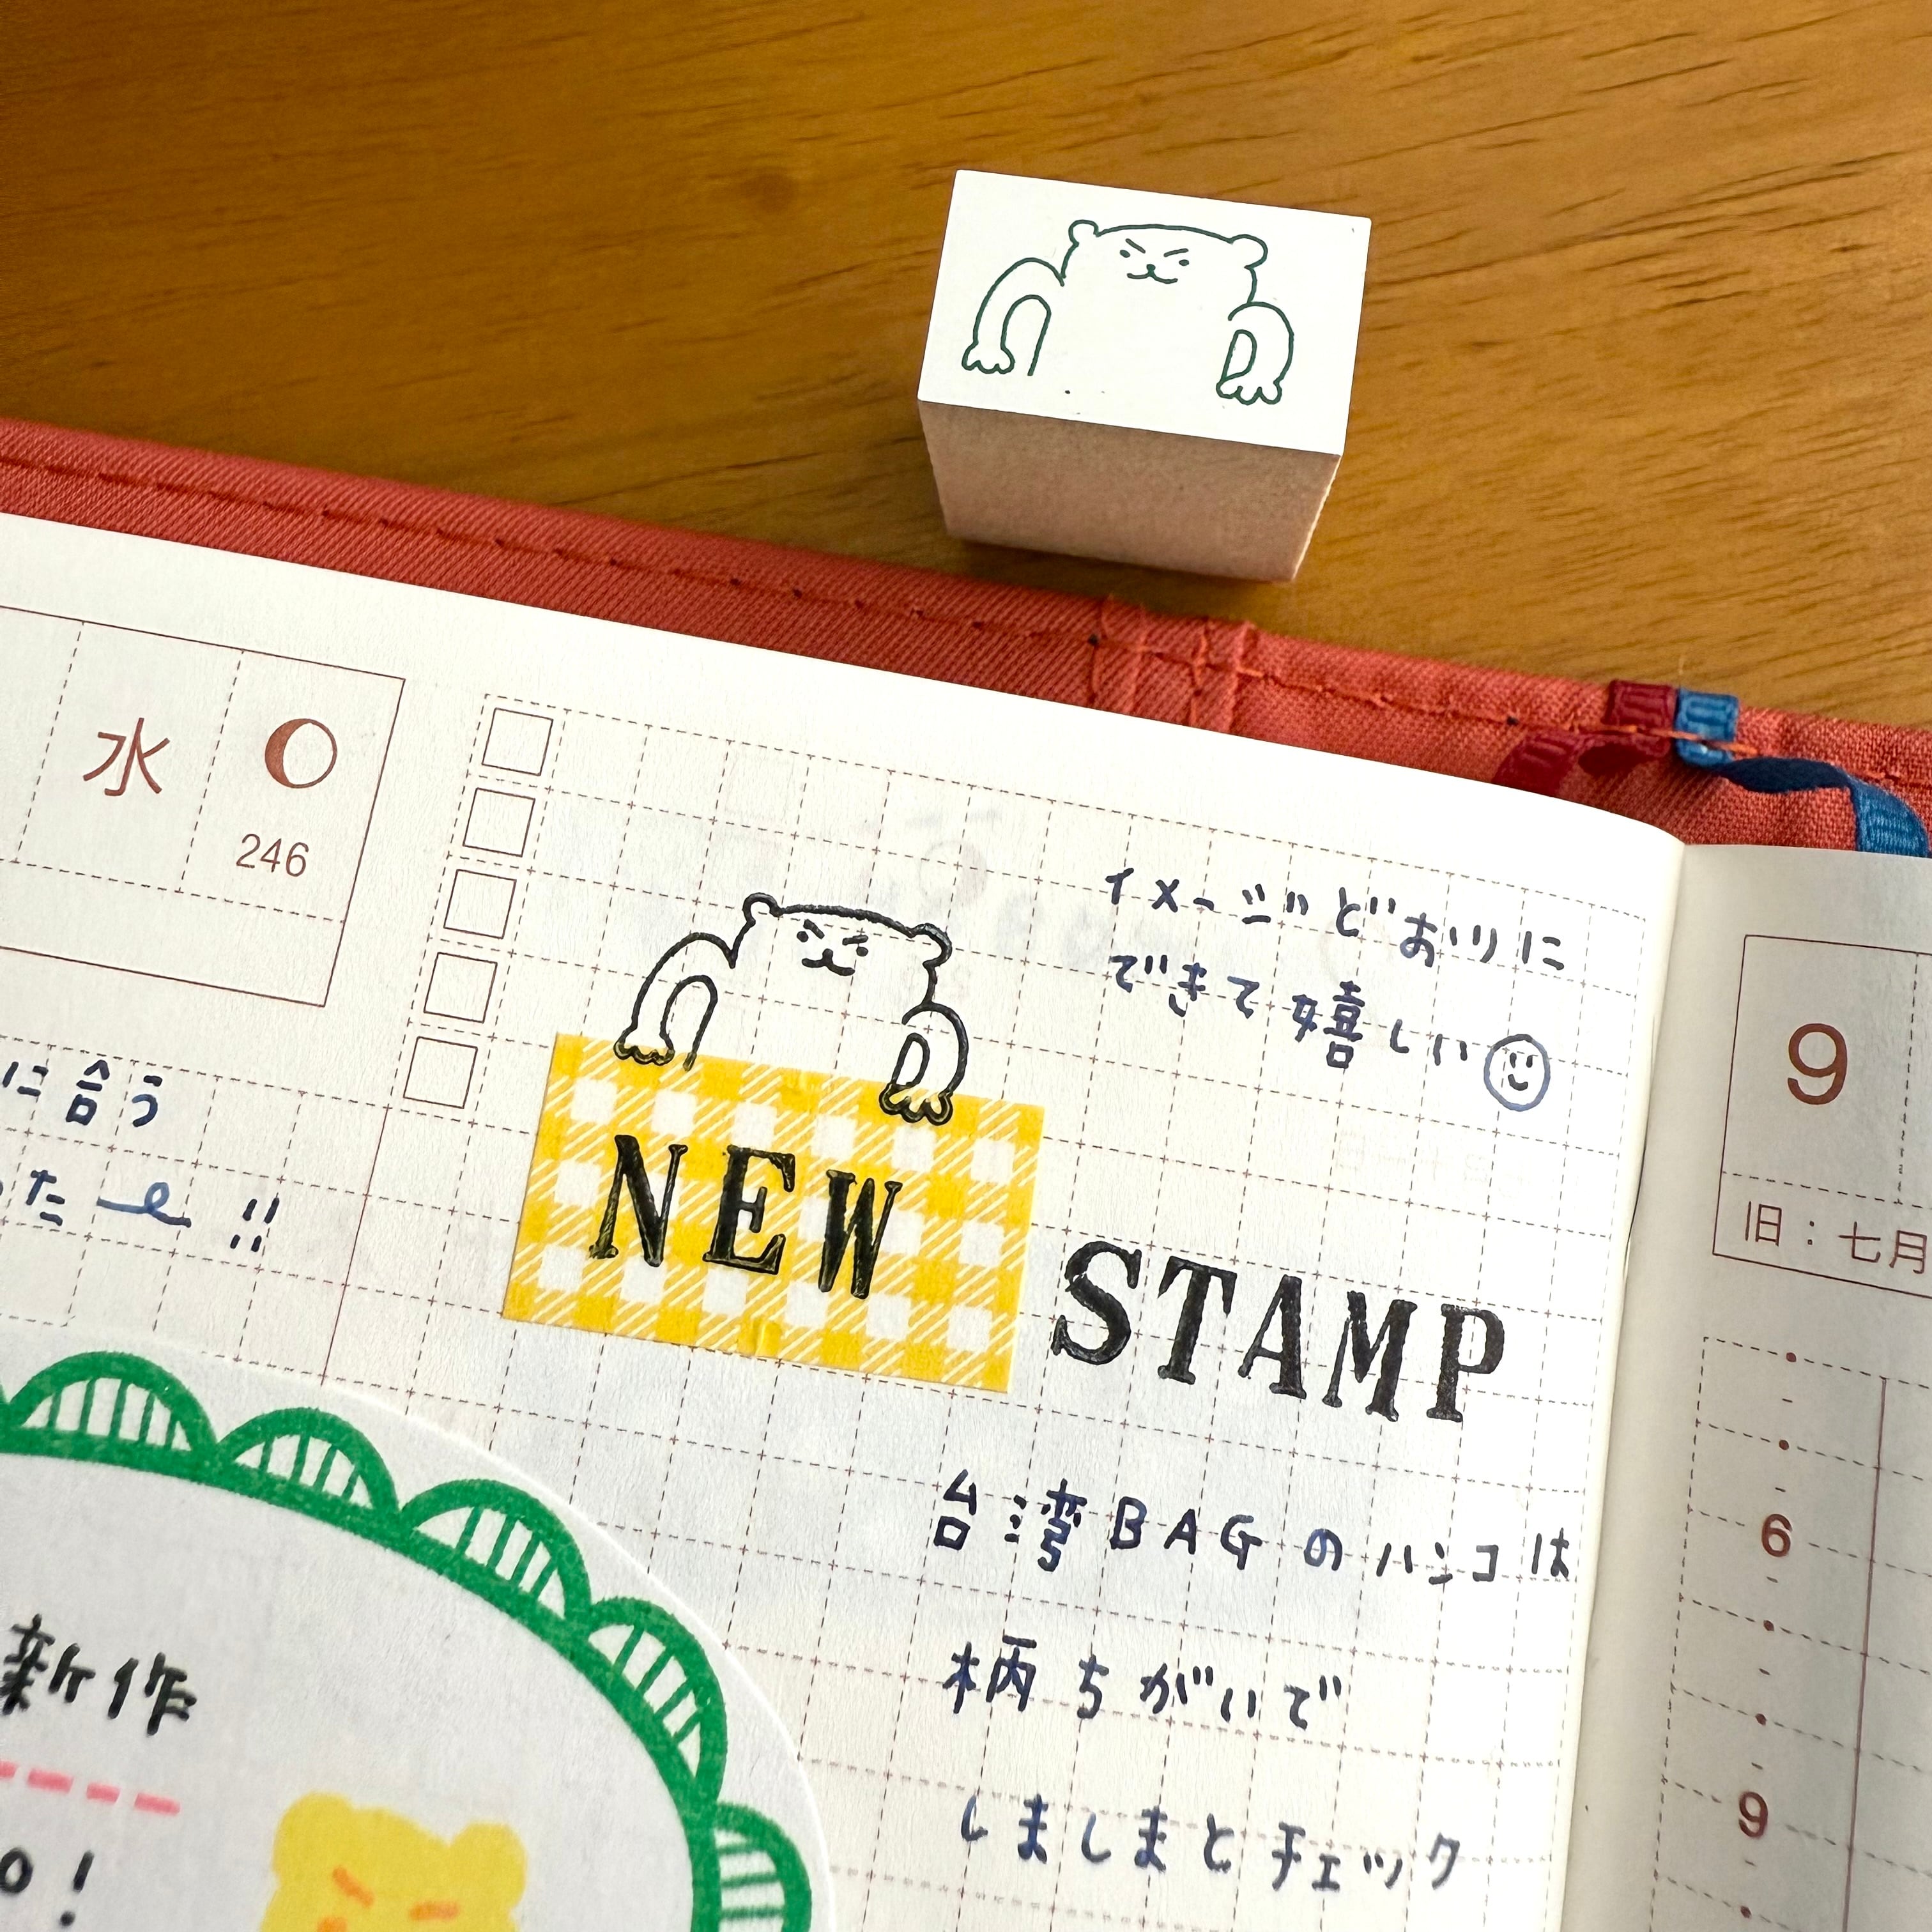 水
246
に合う
た !!
イメージどおりに
できて嬉しい
NEW
STAMP
台湾BAGのハンコは
柄ちがいで
しましまとチェック
新作
o!
9
旧:七月
6
9